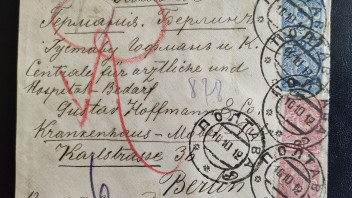 Германия. Берлинъ
Густаву Гофманъ и К.
Centrale für ärztliche und
Hospital-Bedarf
878
Gustav Hoffmann & Co.
Krankenhaus-Mo
Karlstrasse 3
Berlin
ПОЛТАВА
10 10 12
ПОЛТАВА
10 10 12
ПОЛТАВА
10 10 12